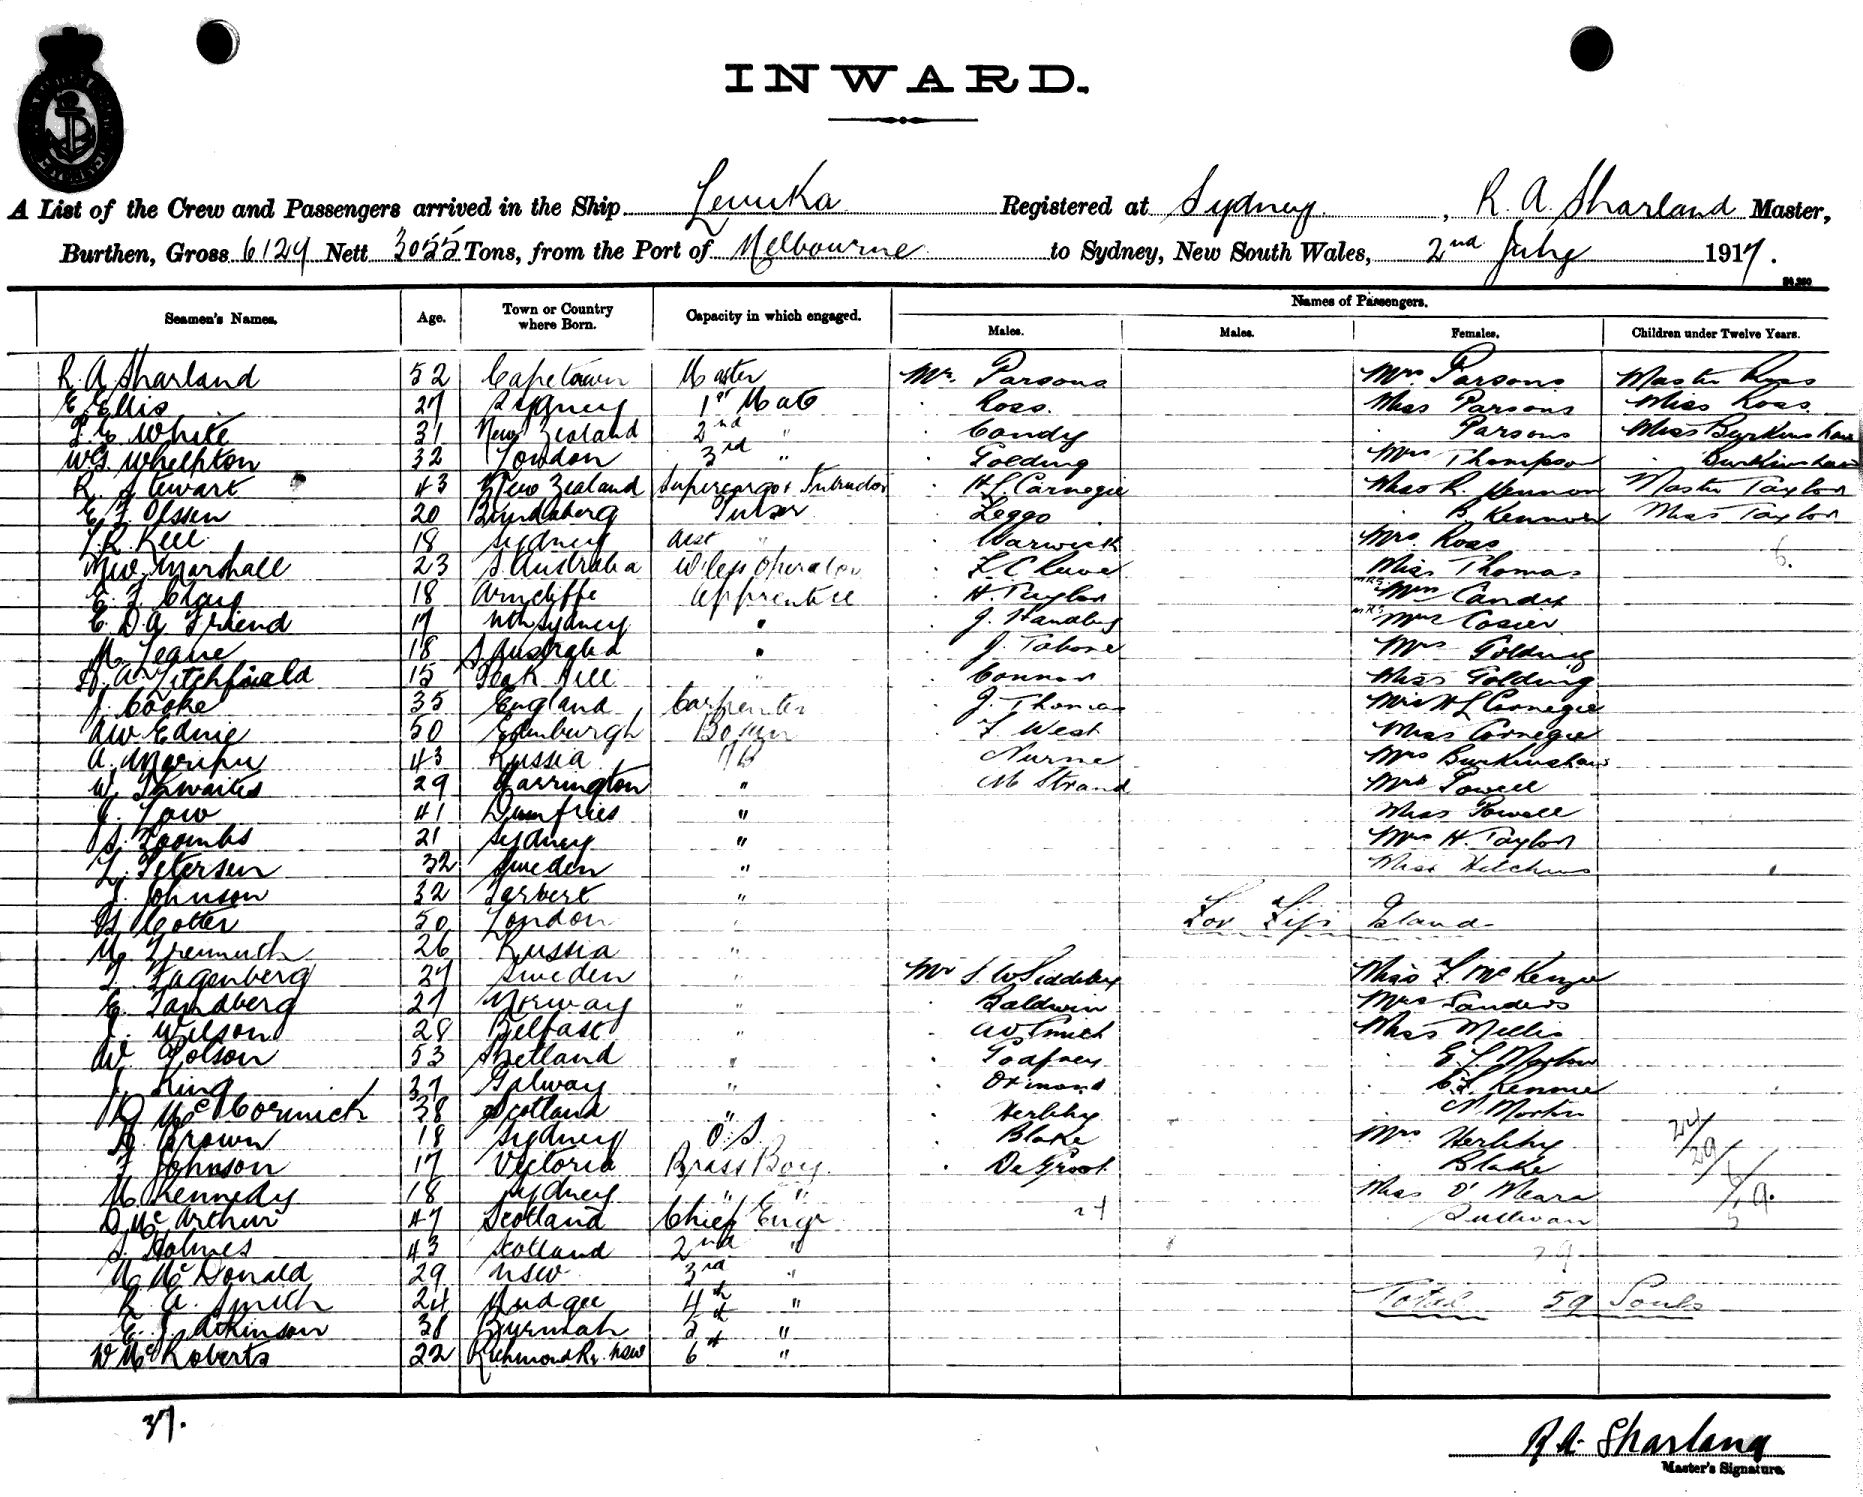 INWARD.
A List of the Crew and Passengers arrived in the Ship Levuka Registered at Sydney, R. A. Sharland Master,
Burthen, Gross 6129 Nett 3055 Tons, from the Port of Melbourne to Sydney, New South Wales, 2nd July 1917.
Names of Passengers.
Seamen's Names. Age. Town or Country where Born. Capacity in which engaged. Males. Males. Females. Children under Twelve Years.
R. A Sharland 52 Capetown Master Mr. Parsons Mrs Parsons Master Ross
E. Ellis 27 Sydney 1st Mate Ross. Miss Parsons Miss Ross
White 31 New Zealand 2nd " Condy Parsons Miss Burkinshaw
W.G. Whelpton 32 London 3rd " Golding Mrs Thompson Burkinshaw
R. Stewart 43 New Zealand Supercargo & H L Carnegie Miss R. Master Taylor
E. Olssen 20 Bundaberg Purser Leggo B Miss Taylor
18 Sydney Asst " Warwick Mrs. Ross 6.
Marshall 23 S. Australia W'less Operator Miss Thomas
E. Craig 18 Arncliffe Apprentice H. Taylor Mrs
E. D. A. Friend 17 Nth Sydney " J. Handley Mrs Cosier
18 S. Australia " J. Tabone Mrs Golding
A. Litchfield 15 Peak Hill " Connor Miss Golding
J. Cooke 35 England Carpenter J. Thomas Mrs H L Carnegie
A W Ednie 50 Edinburgh Bosun F West Miss Carnegie
A. 43 Russia AB Nurne Mrs Burkinshaw
W. Thwaites 29 Harrington " M Strand Mrs Powell
J. Low 41 Dumfries " Miss Powell
Toombs 21 Sydney " Mrs H. Taylor
Petersen 32 Sweden " Miss Hitchins
J. Johnson 32 Tarbert "
Cotter 50 London " For Fiji Island
26 Russia "
Fagenberg 27 Sweden " Mr Miss F. McKenzie
E. Sandberg 27 Norway " Baldwin Mrs Sanders
J. Wilson 28 Belfast " Smith Miss Mills
W. Tolson 53 Shetland " Godfrey E. L. Morton
J. King 37 Galway " Ormond
McCormick 38 Scotland " Herlihy N. Morton
Brown 18 Sydney O.S. Blake Mrs Herlihy 24/29
Johnson 17 Victoria Brass Boy De Groot Blake
M. Kennedy 18 Sydney " " Miss O'Meara
D McArthur 47 Scotland Chief Engr 24 Sullivan
Holmes 43 Scotland 2nd " 29
McDonald 29 NSW 3rd "
R. A. Smith 24 Mudgee 4th " Total 59 Souls
E. J. Atkinson 38 Burmah 5th "
W McRoberts 22 Richmond Rr. NSW 6th "
37.
R A Sharland
Master's Signature.